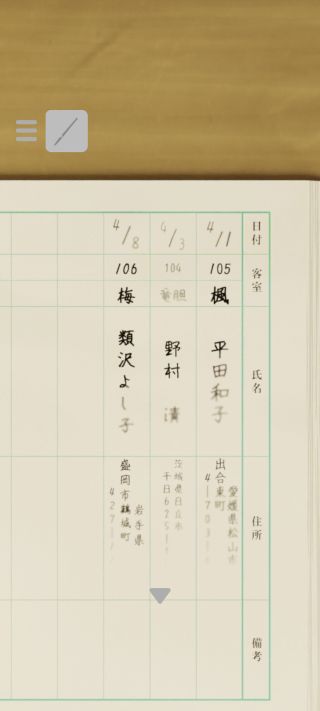 日付
客室
氏名
住所
備考
4/1
105
楓
平田和子
愛媛県松山市
出合東町
4-1703-1
4/3
104
竜胆
野村 清
茨城県日立市
千日625-1
4/8
106
梅
類沢よし子
岩手県
盛岡市鵜城町
427-1